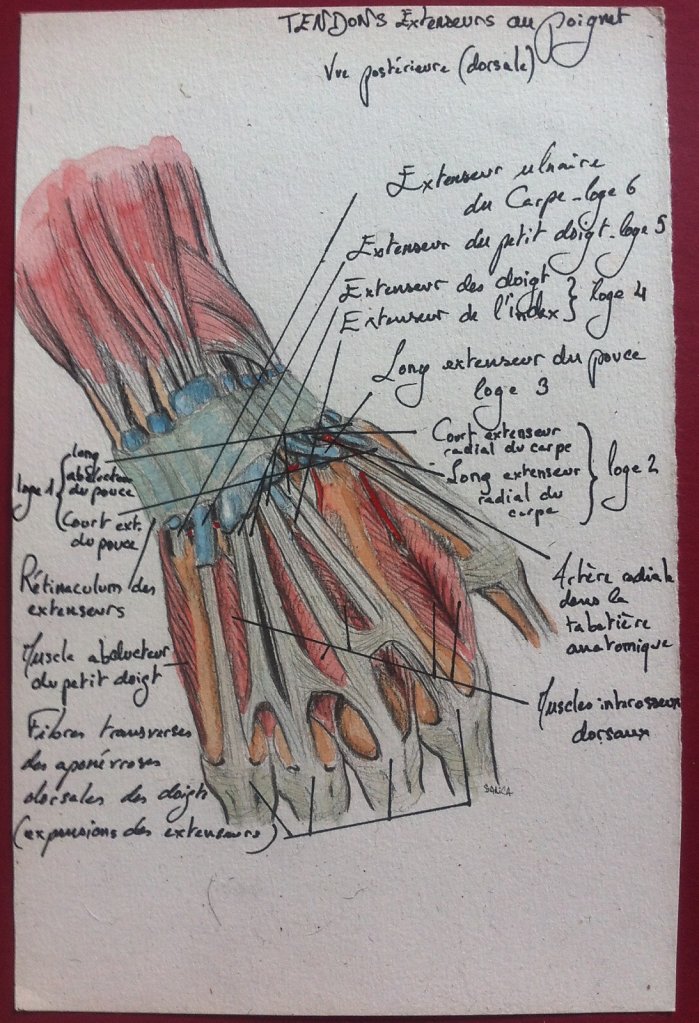 TENDONS Extenseurs au poignet
Vue postérieure (dorsale)
Extenseur ulnaire
du Carpe - loge 6
Extenseur du petit doigt - loge 5
Extenseur des doigt
Extenseur de l'index } loge 4
Long extenseur du pouce
loge 3
Court extenseur
radial du carpe
Long extenseur
radial du
carpe
loge 2
Artère radiale
dans la
tabatière
anatomique
Muscles interosseux
dorsaux
loge 1 {
long
abducteur
du pouce
Court ext.
du pouce
Rétinaculum des
extenseurs
Muscle abducteur
du petit doigt
Fibres transverses
des aponévroses
dorsales des doigts
(expansions des extenseurs)
SARICA